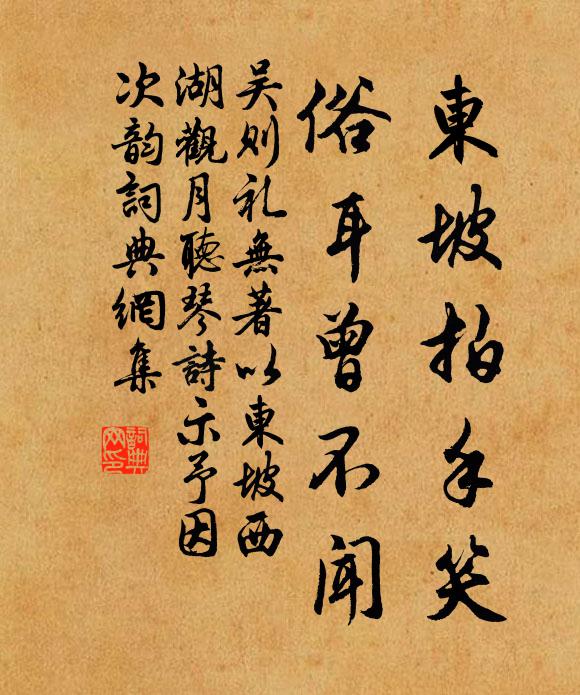 東坡拍手笑
俗耳曾不聞
吴则礼無著以東坡西
湖觀月聽琴詩示予因
次韵詞典網集
詞典网印